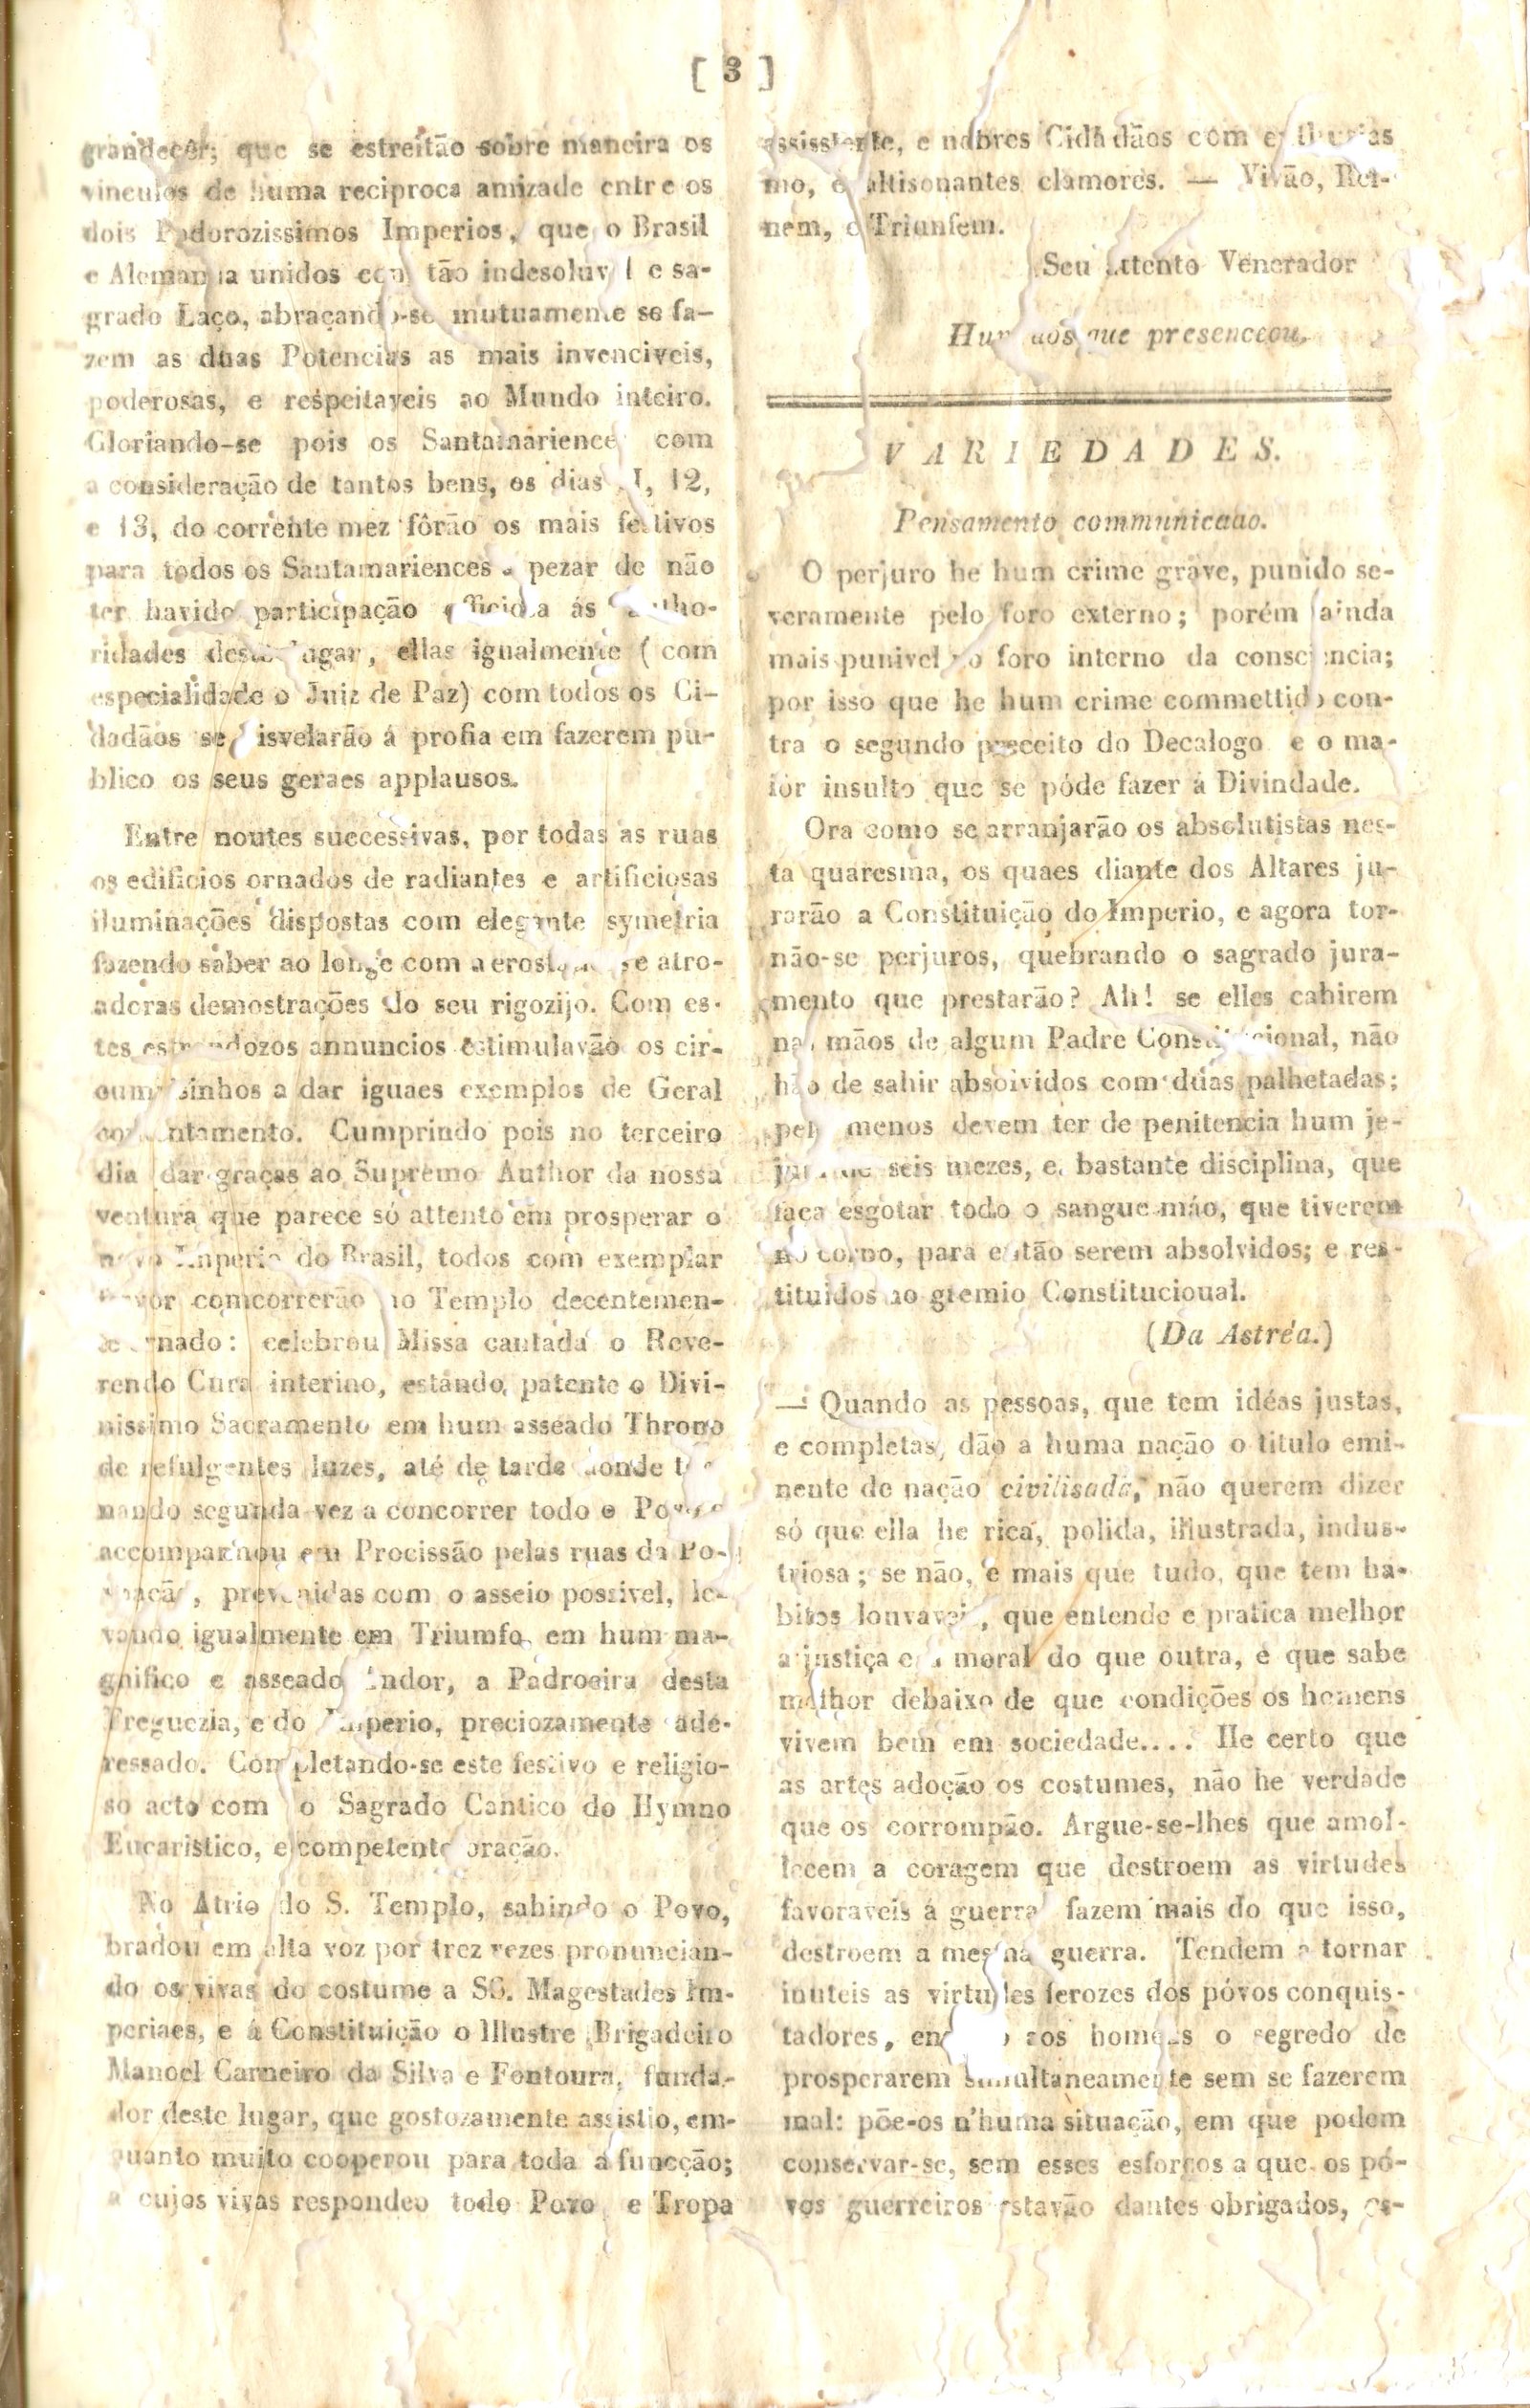 [ 3 ]
grandecer; que se estreitão sobre maneira os
vinculos de huma reciproca amizade entre os
dois Podorozissimos Imperios, que o Brasil
e Alemanha unidos com tão indesoluvel e sa-
grado Laço, abraçando-se mutuamente se fa-
zem as duas Potencias as mais invenciveis,
poderosas, e respeitaveis ao Mundo inteiro.
Gloriando-se pois os Santamarience com
a consideração de tantos bens, os dias 12,
e 13, do corrente mez fôrão os mais festivos
para todos os Santamariences a pezar de não
ter havido participação ás
ridades deste lugar, ellas igualmente ( com
especialidade o Juiz de Paz) com todos os Ci-
dadãos se isvelarão á profia em fazerem pu-
blico os seus geraes applausos.
Entre noutes successivas, por todas as ruas
os edificios ornados de radiantes e artificiosas
iluminações dispostas com elegante symetria
fazendo saber ao longe com e atro-
adoras demostrações do seu rigozijo. Com es-
tes estrondozos annuncios estimulavão os cir-
cumvisinhos a dar iguaes exemplos de Geral
contentamento. Cumprindo pois no terceiro
dia dar graças ao Supremo Author da nossa
ventura que parece só attento em prosperar o
novo Imperio do Brasil, todos com exemplar
comcorrerão ao Templo decentemen-
te ornado: celebrou Missa cantada o Reve-
rendo Cura interino, estando patente o Divi-
nissimo Sacramento em hum asseado Throno
de refulgentes luzes, até de tarde donde tor-
nando segunda vez a concorrer todo o Povo
accompanhou em Procissão pelas ruas da Po-
voação, prevenidas com o asseio possivel, le-
vando igualmente em Triumfo em hum ma-
gnifico e asseado Andor, a Padroeira desta
Freguezia, e do Imperio, preciozamente ade-
ressado. Completando-se este festivo e religio-
so acto com o Sagrado Cantico do Hymno
Eucaristico, e competente oração.
No Atrio do S. Templo, sahindo o Povo,
bradou em alta voz por trez vezes pronuncian-
do os vivas do costume a SS. Magestades Im-
periaes, e á Constituição o Illustre Brigadeiro
Manoel Carneiro da Silva e Fontoura, funda-
dor deste lugar, que gostozamente assistio, em-
quanto muito cooperou para toda a funcção;
a cujos vivas respondeo todo Povo e Tropa
assisstente, e nobres Cidadãos com enthusias
mo, e altisonantes clamores. — Vivão, Rei-
nem, e Triunfem.
Seu Attento Venerador
Hum dos que presenceou.
VARIEDADES.
Pensamento communicado.
O perjuro he hum crime grave, punido se-
veramente pelo foro externo; porém ainda
mais punivel no foro interno da consciencia;
por isso que he hum crime commettido con-
tra o segundo preceito do Decalogo e o ma-
ior insulto que se póde fazer á Divindade.
Ora como se arranjarão os absolutistas nes-
ta quaresma, os quaes diante dos Altares ju-
rarão a Constituição do Imperio, e agora tor-
não-se perjuros, quebrando o sagrado jura-
mento que prestarão? Ah! se elles cahirem
nas mãos de algum Padre Constitucional, não
hão de sahir absolvidos com duas palhetadas;
pelo menos devem ter de penitencia hum je-
jum de seis mezes, e bastante disciplina, que
faça esgotar todo o sangue máo, que tiverem
no corpo, para então serem absolvidos; e res-
tituidos ao gremio Constitucioual.
(Da Astréa.)
— Quando as pessoas, que tem idéas justas,
e completas, dão a huma nação o titulo emi-
nente de nação civilisada, não querem dizer
só que ella he rica, polida, illustrada, indus-
triosa; se não, e mais que tudo, que tem ha-
bitos louvaveis, que entende e pratica melhor
a justiça e a moral do que outra, e que sabe
melhor debaixo de que condições os homens
vivem bem em sociedade.... He certo que
as artes adoção os costumes, não he verdade
que os corrompão. Argue-se-lhes que amol-
lecem a coragem que destroem as virtudes
favoraveis á guerra fazem mais do que isso,
destroem a mesma guerra. Tendem a tornar
inuteis as virtudes ferozes dos póvos conquis-
tadores, aos homens o segredo de
prosperarem simultaneamente sem se fazerem
mal: põe-os n'huma situação, em que podem
conservar-se, sem esses esforços a que os pó-
vos guerreiros estavão dantes obrigados, es-